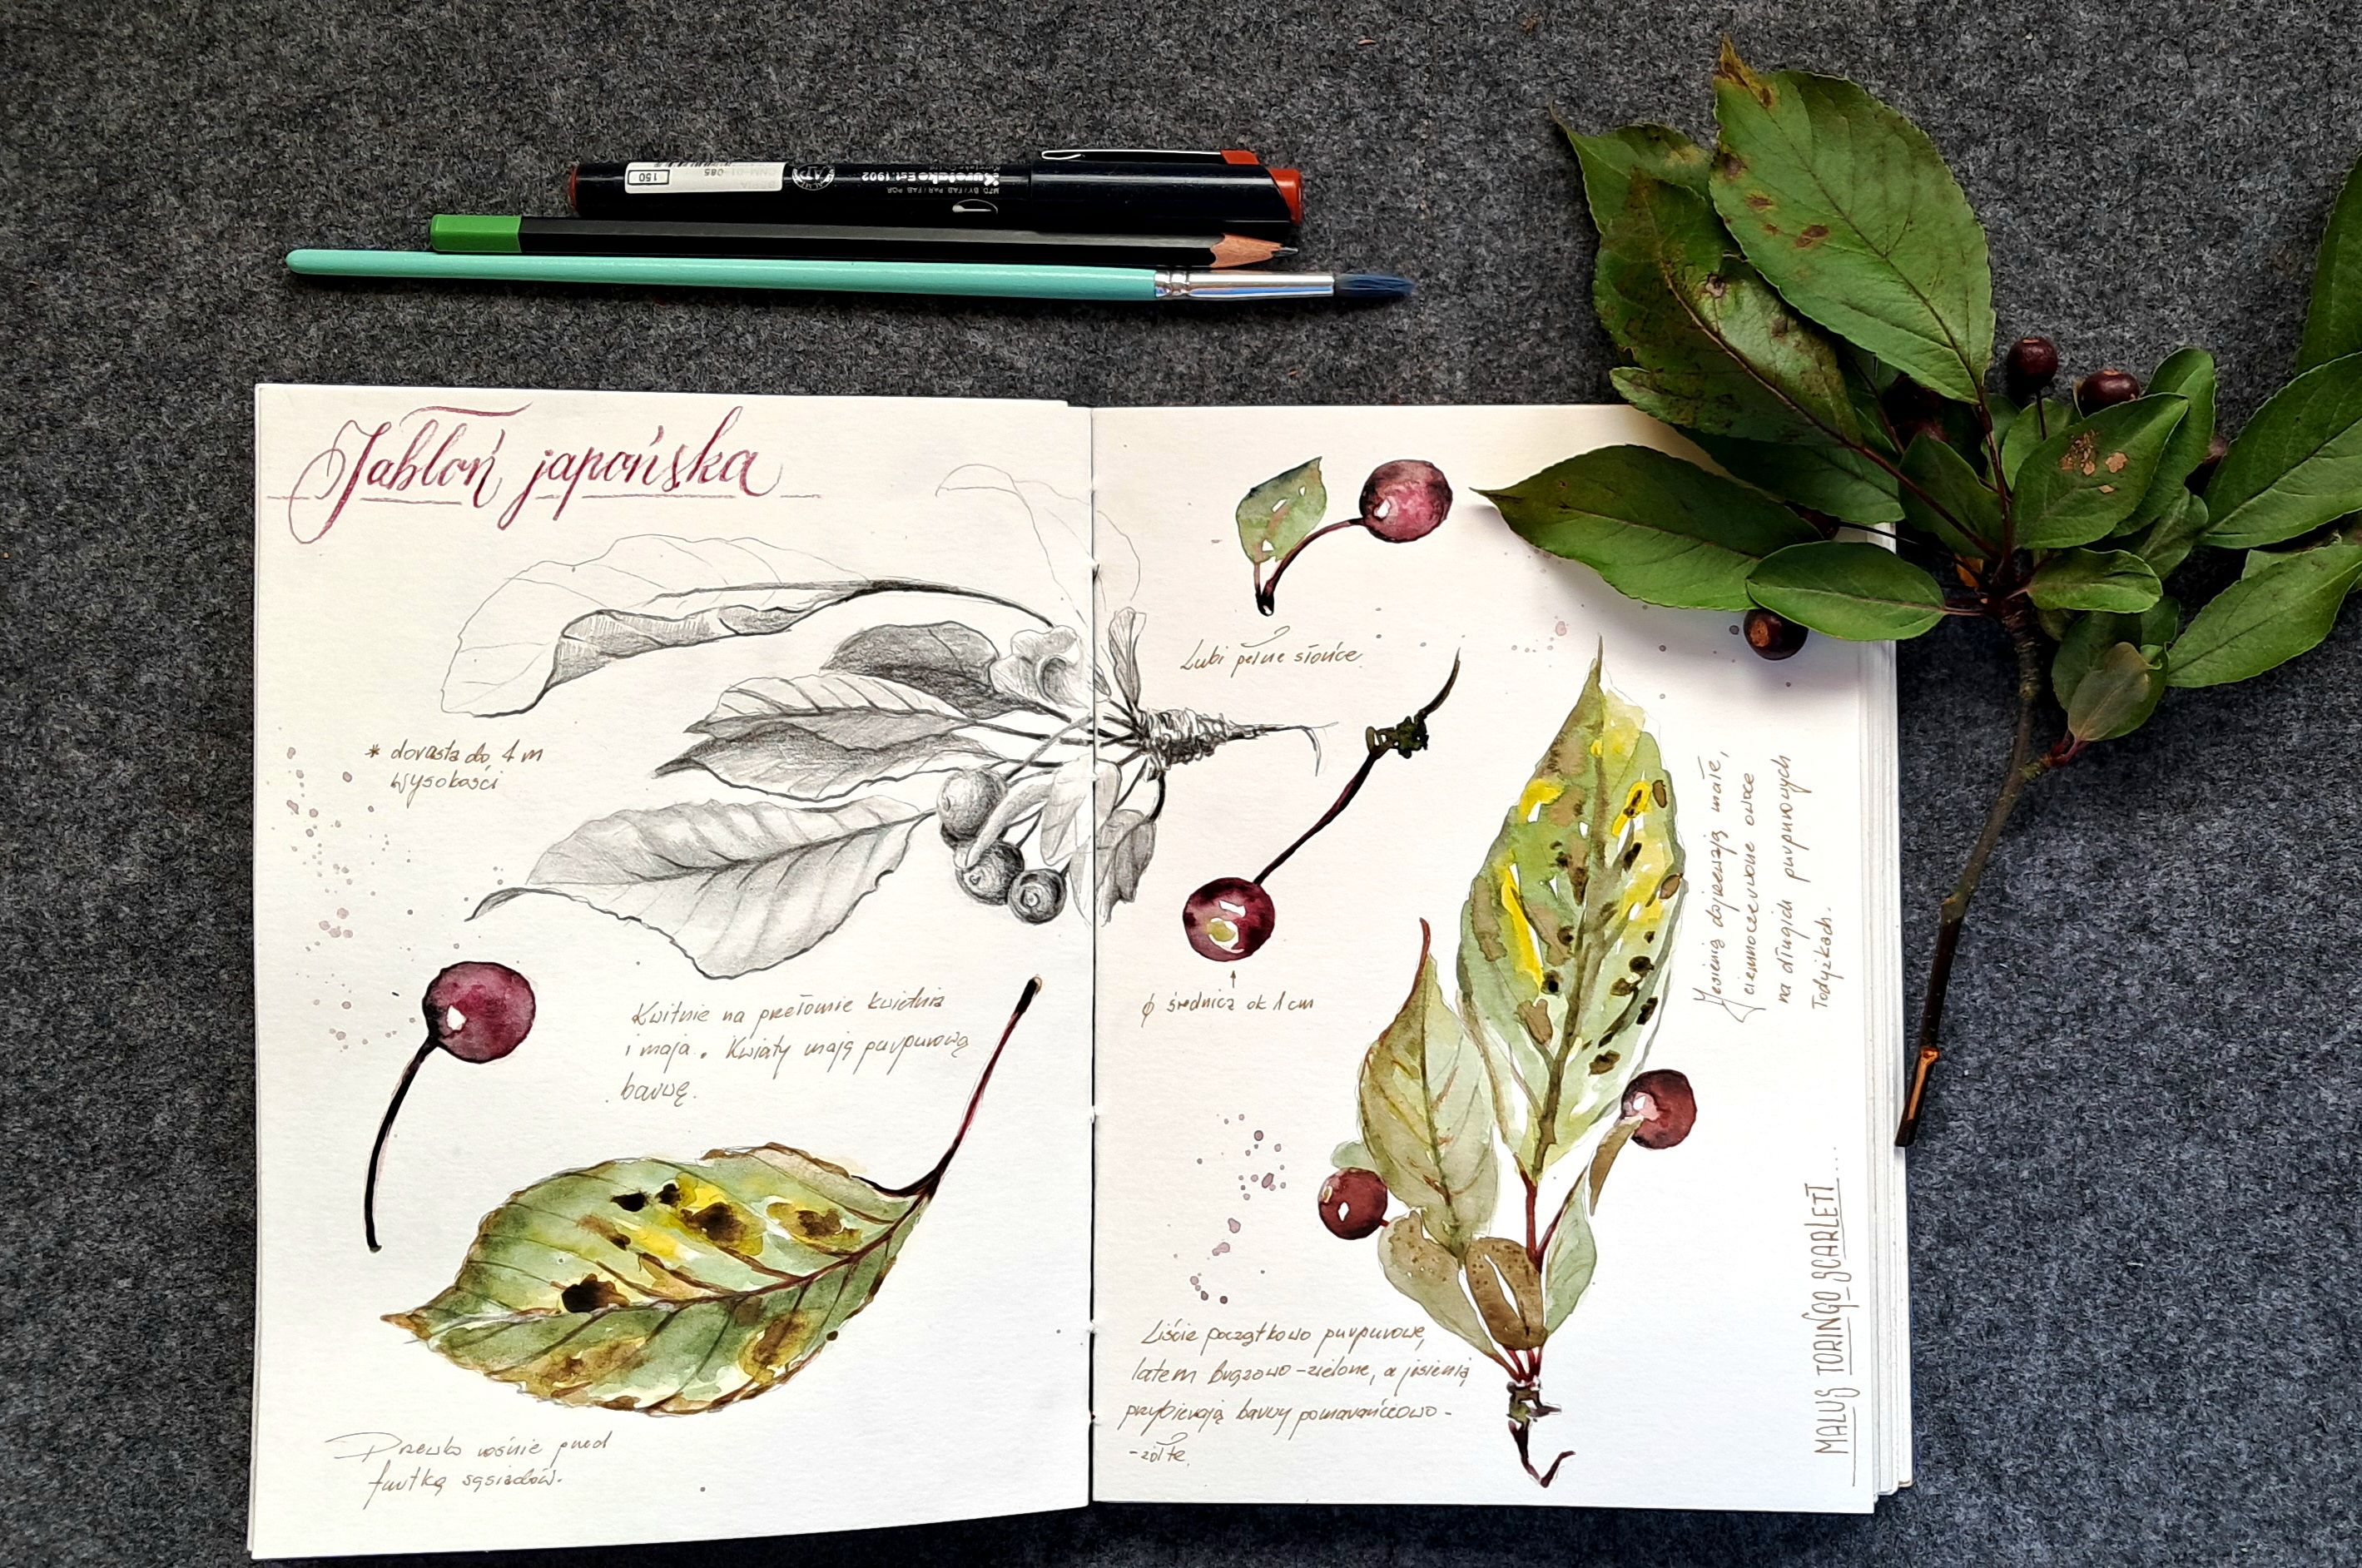 150
085
Kuretake Est.1902
MFD BY / FAB. PAR / FAB. POR
Jabłoń japońska
* dorasta do 4 m
wysokości
Kwitnie na przełomie kwietnia
i maja. Kwiaty mają purpurową
barwę.
Drzewko rośnie przed
furtką sąsiadów.
Lubi pełne słońce
ϕ średnica ok 1 cm
Jesienią dojrzewają małe,
ciemnoczerwone owoce
na długich purpurowych
łodyżkach.
Liście początkowo purpurowe,
latem brązowo-zielone, a jesienią
przybierają barwy pomarańczowo-
-żółte.
MALUS TORINGO SCARLETT...